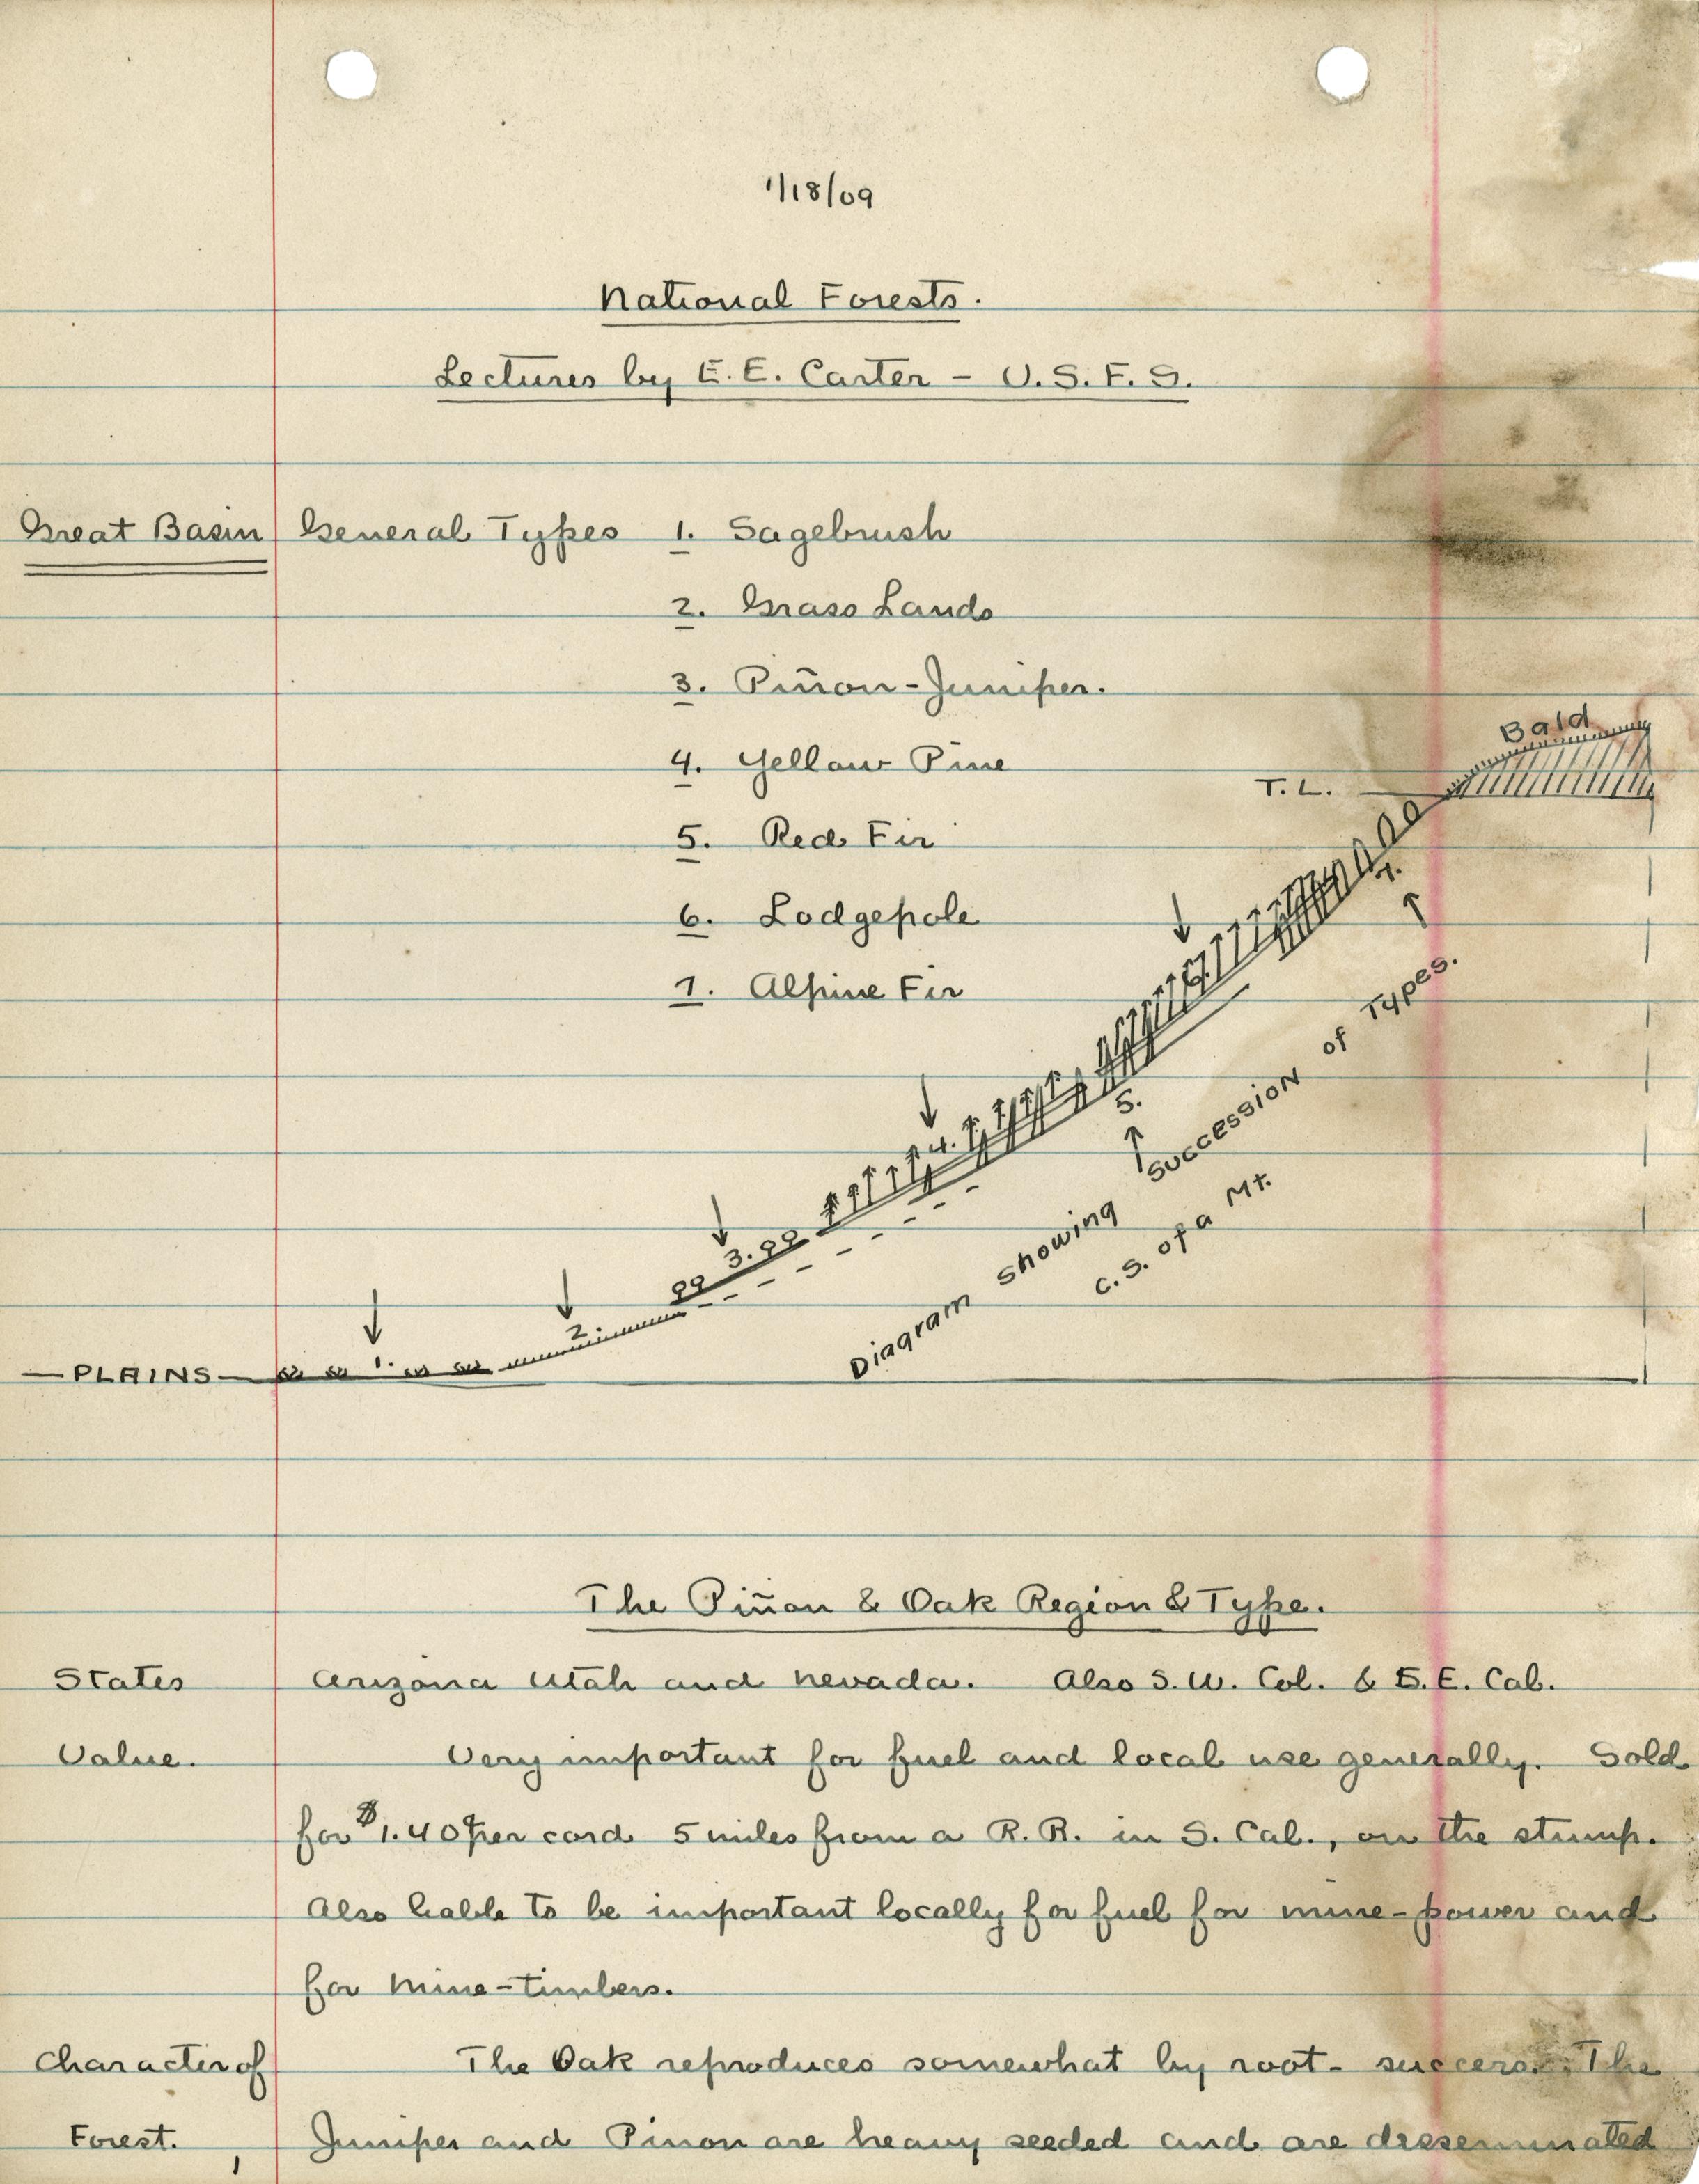 1/18/09
National Forests.
Lectures by E. E. Carter - U. S. F. S.
Great Basin General Types 1. Sagebrush
2. Grass Lands
3. Piñon-Juniper.
4. Yellow Pine
5. Red Fir
6. Lodgepole
7. Alpine Fir
Bald
T. L.
7.
6.
5.
4.
3.
2.
1.
Diagram showing succession of Types.
C. S. of a Mt.
— PLAINS —
The Piñon & Oak Region & Type.
States Arizona Utah and Nevada. Also S. W. Col. & S. E. Cal.
Value. Very important for fuel and local use generally. Sold
for $1.40 per cord 5 miles from a R. R. in S. Cal., on the stump.
Also liable to be important locally for fuel for mine-power and
for mine-timbers.
Character of The Oak reproduces somewhat by root- succers. The
Forest. Juniper and Pinon are heavy seeded and are disseminated